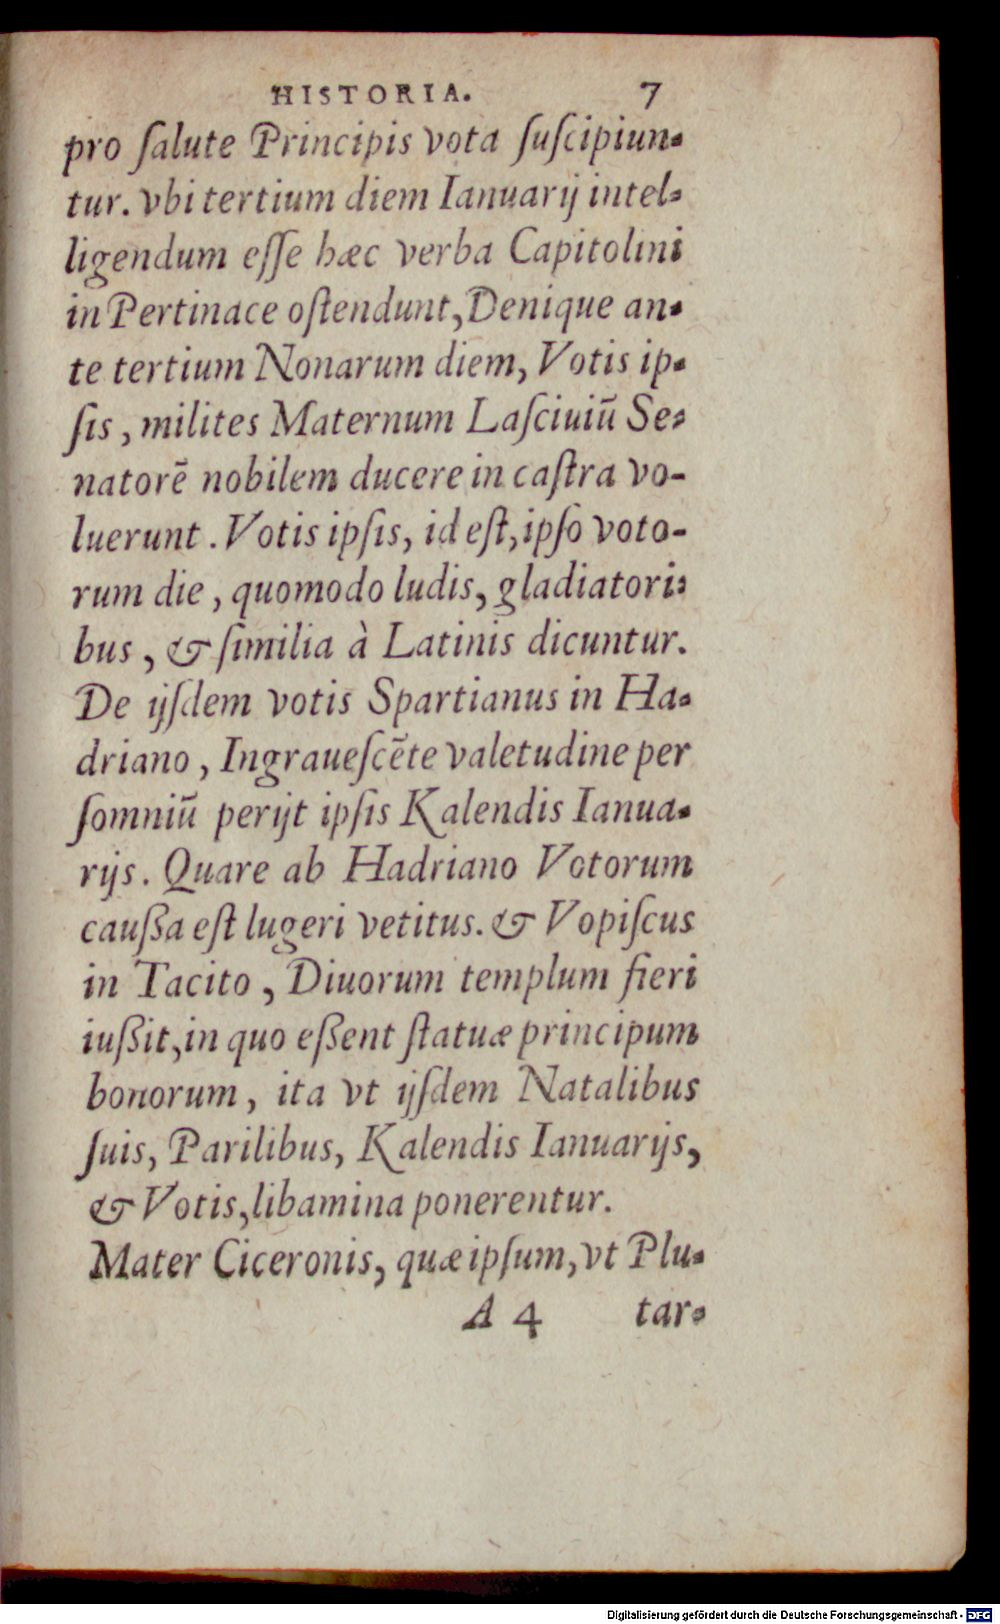 HISTORIA. 7
pro ſalute Principis vota ſuſcipiun-
tur. vbi tertium diem Ianuarij intel-
ligendum eſſe hæc verba Capitolini
in Pertinace oſtendunt, Denique an-
te tertium Nonarum diem, Votis ip-
ſis, milites Maternum Laſciuiū Se-
natorē nobilem ducere in caſtra vo-
luerunt. Votis ipſis, id eſt, ipſo voto-
rum die, quomodo ludis, gladiatori-
bus, & ſimilia à Latinis dicuntur.
De ijſdem votis Spartianus in Ha-
driano, Ingraueſcēte valetudine per
ſomniū perijt ipſis Kalendis Ianua-
rijs. Quare ab Hadriano Votorum
caußa eſt lugeri vetitus. & Vopiſcus
in Tacito, Diuorum templum fieri
iußit, in quo eßent ſtatuæ principum
bonorum, ita vt ijſdem Natalibus
ſuis, Parilibus, Kalendis Ianuarijs,
& Votis, libamina ponerentur.
Mater Ciceronis, quæ ipſum, vt Plu-
A 4 tar-
Digitalisierung gefördert durch die Deutsche Forschungsgemeinschaft - DFG